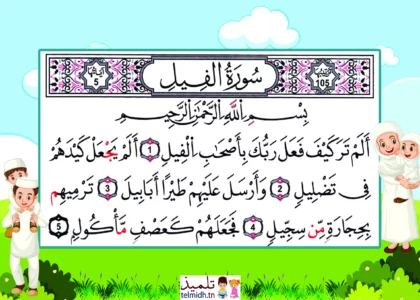 سُورَةُ الْفِيلِ
105
5
بِسْمِ اللَّهِ الرَّحْمَٰنِ الرَّحِيمِ
أَلَمْ تَرَ كَيْفَ فَعَلَ رَبُّكَ بِأَصْحَابِ الْفِيلِ 1 أَلَمْ يَجْعَلْ كَيْدَهُمْ
فِي تَضْلِيلٍ 2 وَأَرْسَلَ عَلَيْهِمْ طَيْرًا أَبَابِيلَ 3 تَرْمِيهِم
بِحِجَارَةٍ مِّن سِجِّيلٍ 4 فَجَعَلَهُمْ كَعَصْفٍ مَّأْكُولٍ 5
تلميذ
telmidh.tn